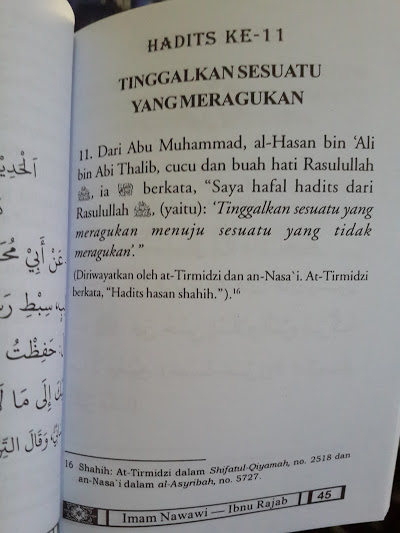 HADITS KE-11
TINGGALKAN SESUATU
YANG MERAGUKAN
11. Dari Abu Muhammad, al-Hasan bin 'Ali
bin Abi Thalib, cucu dan buah hati Rasulullah
ﷺ, ia berkata, "Saya hafal hadits dari
Rasulullah ﷺ, (yaitu): 'Tinggalkan sesuatu yang
meragukan menuju sesuatu yang tidak
meragukan'."
(Diriwayatkan oleh at-Tirmidzi dan an-Nasa`i. At-Tirmidzi
berkata, "Hadits hasan shahih.").¹⁶
16 Shahih: At-Tirmidzi dalam Shifatul-Qiyamah, no. 2518 dan
an-Nasa`i dalam al-Asyribah, no. 5727.
Imam Nawawi — Ibnu Rajab 45
عَنْ أَبِيْ
سِبْطِ
حَفِظْتُ
إِلَى مَا لَا
وَقَالَ